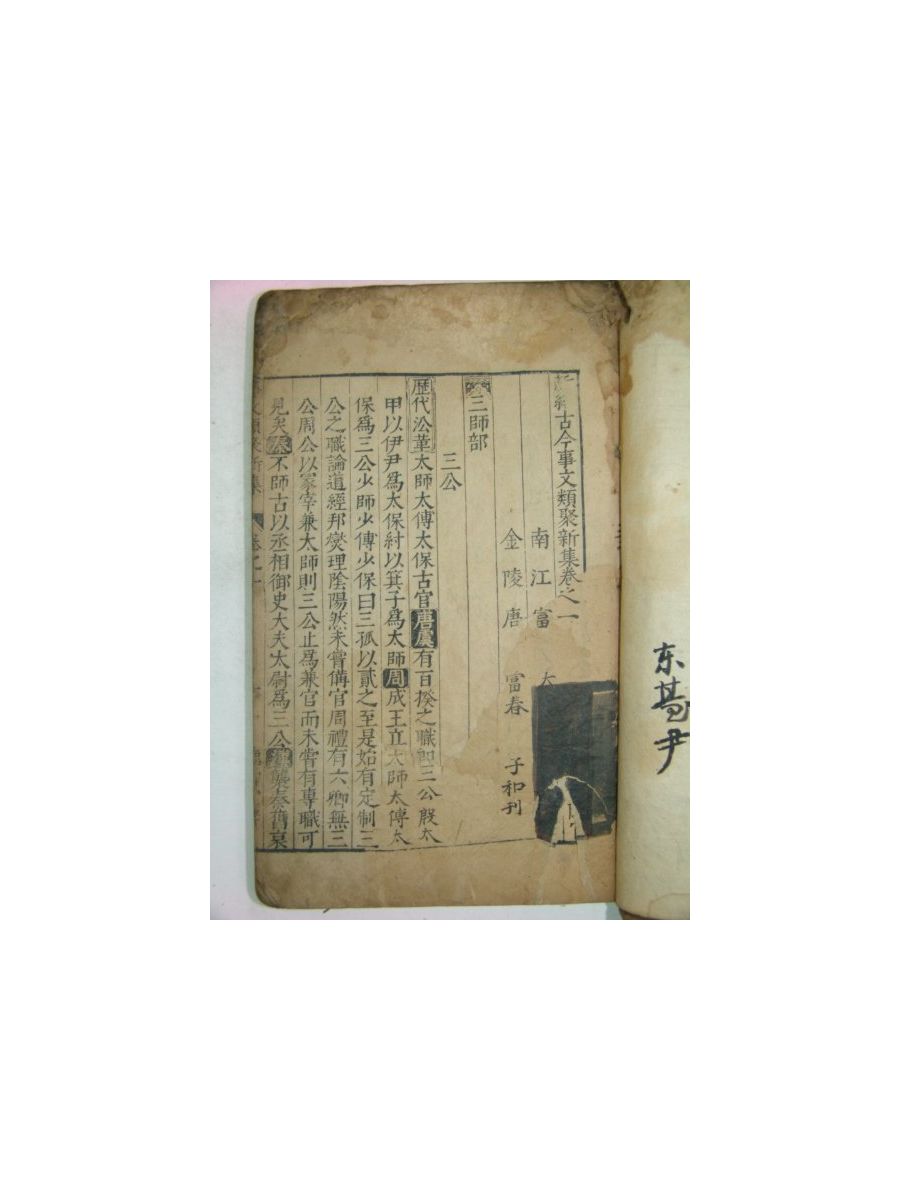 东萬尹
新編古今事文類聚新集卷之一
南江富大
金陵唐富春子和刊
三師部
三公
歷代沿革太師太傅太保古官唐虞有百揆之職即三公殷太
甲以伊尹爲太保紂以箕子爲太師周成王立太師太傅太
保爲三公少師少傅少保曰三孤以貳之至是始有定制三
公之職論道經邦燮理陰陽然未嘗備官周禮有六卿無三
公周公以冢宰兼太師則三公止爲兼官而未嘗有專職可
見矣秦不師古以丞相御史大夫太尉爲三公漢襲秦舊哀
事文類聚新集 卷之一